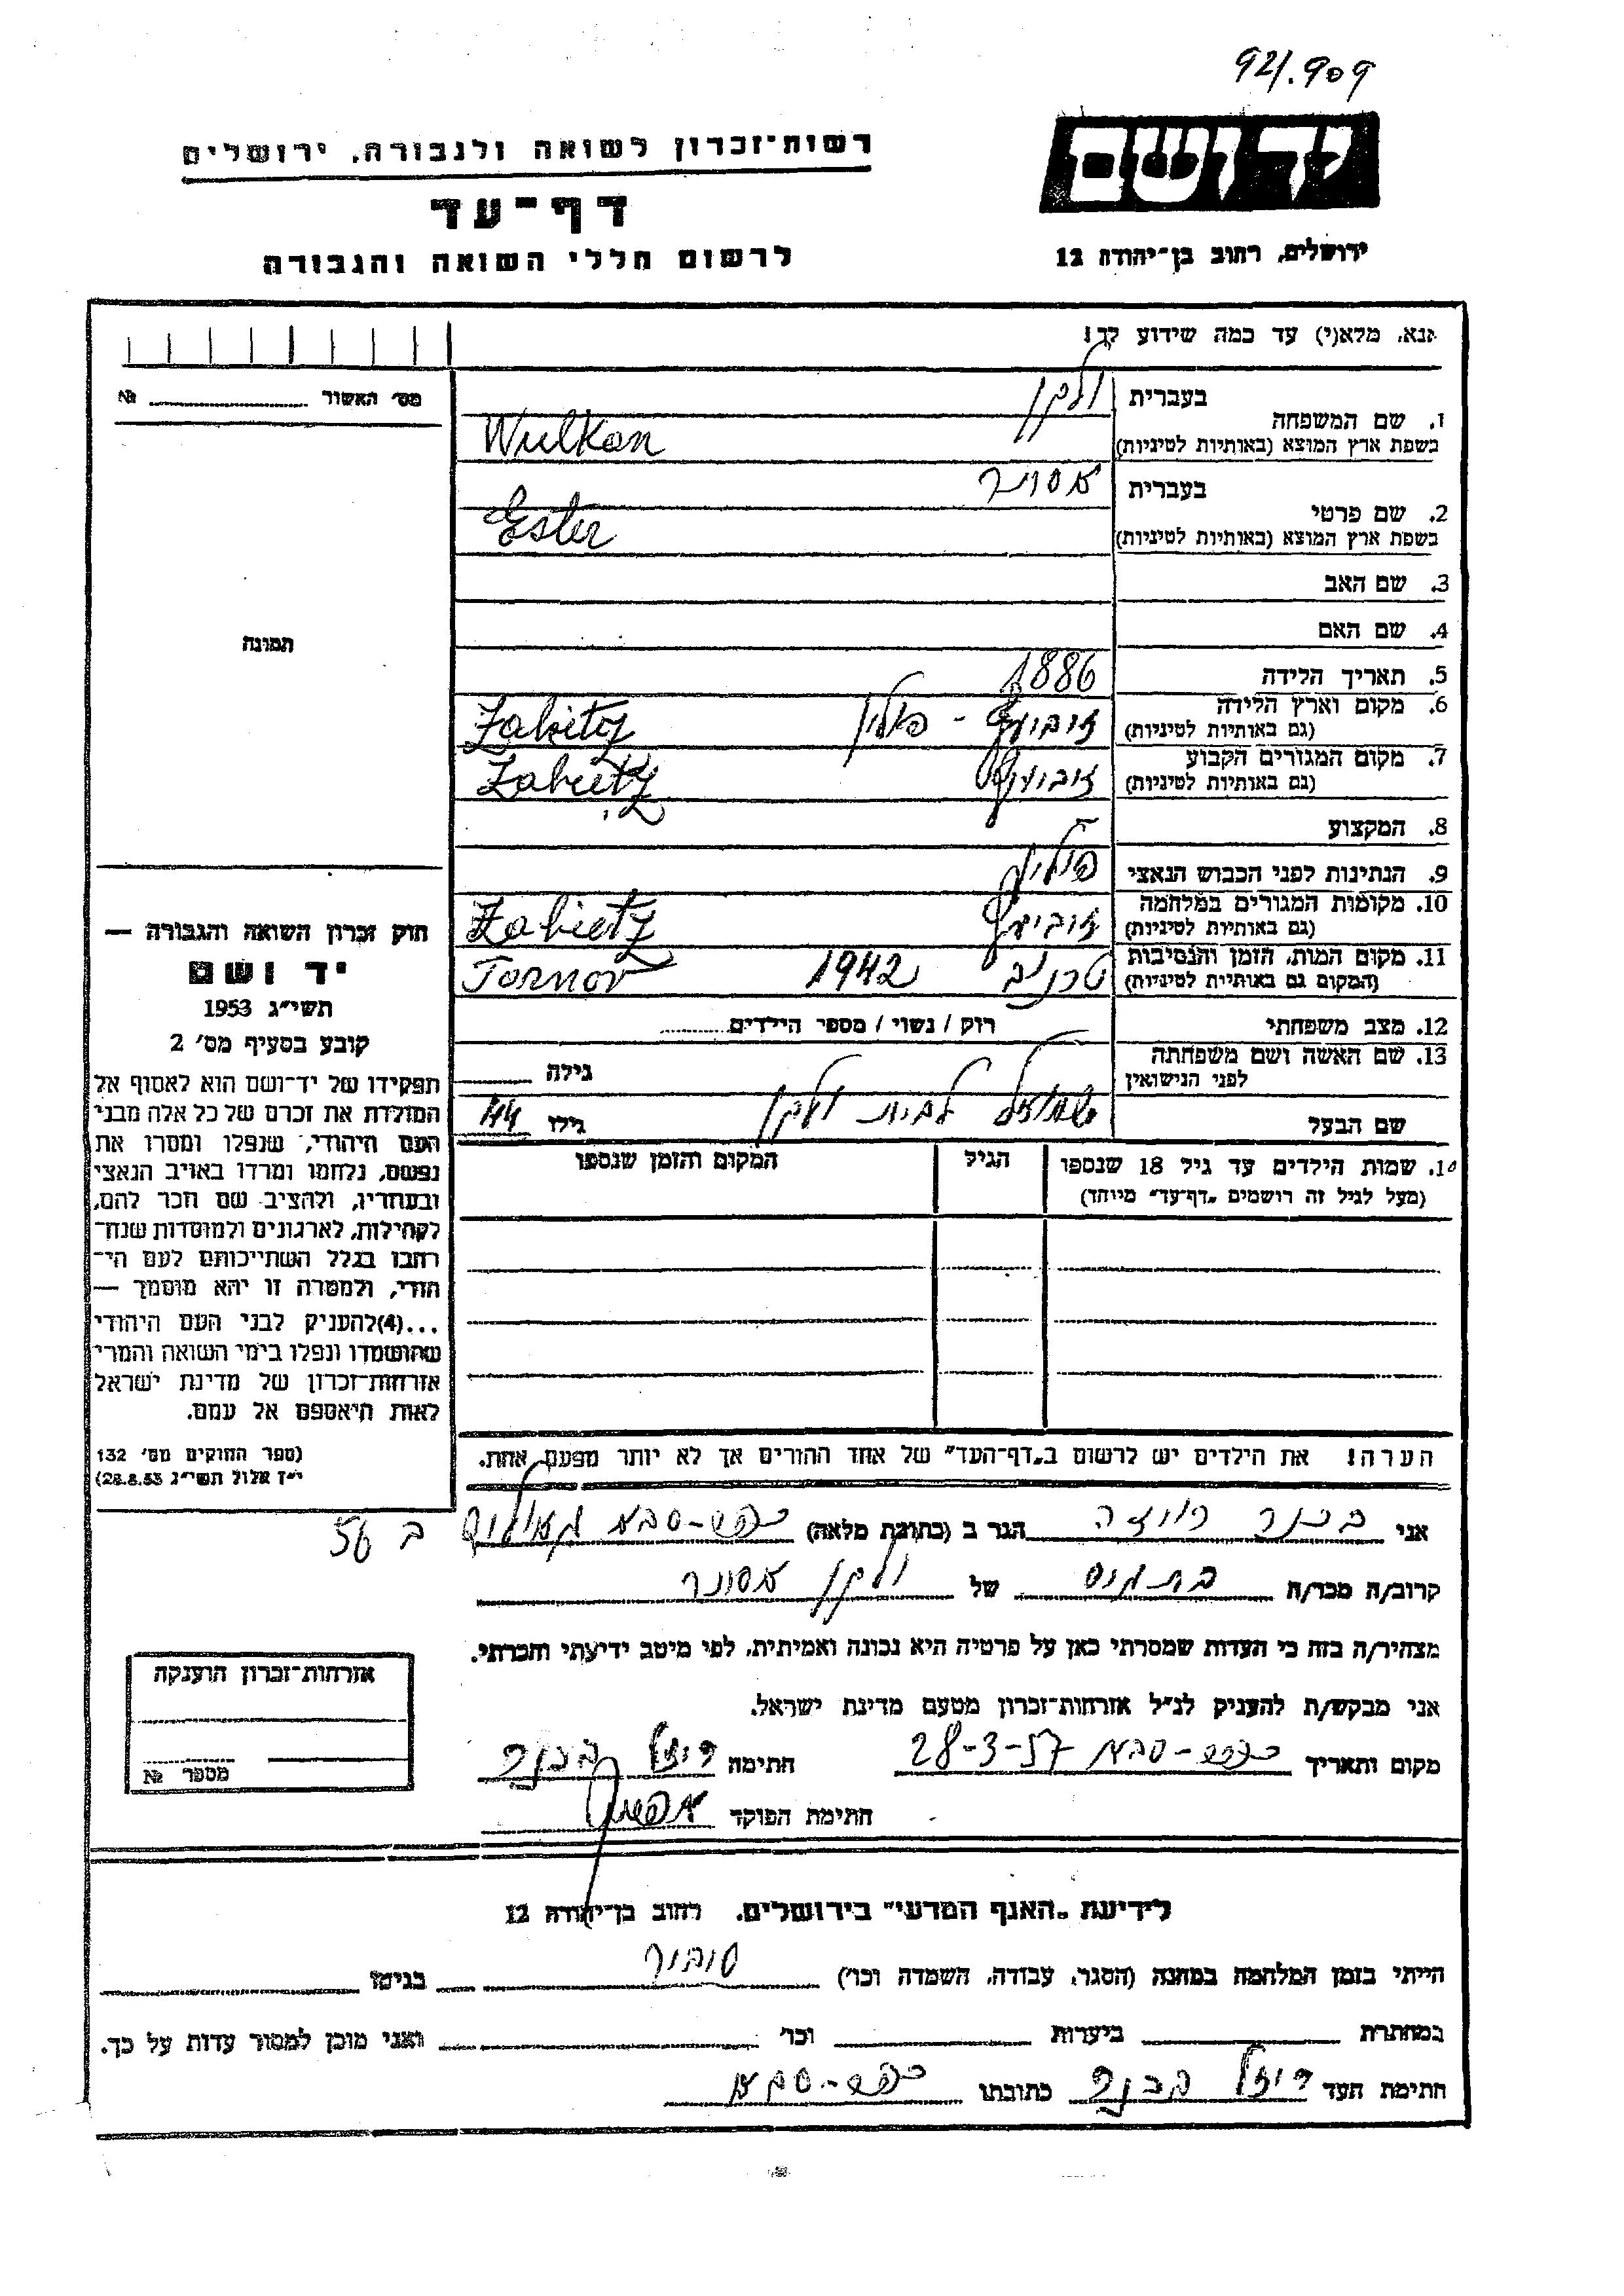 92/.909
רשות־זכרון לשואה ולגבורה, ירושלים
יד ושם
דף־עד
לרשום חללי השואה והגבורה
ירושלים, רחוב בן־יהודה 12
אנא, מלא(י) עד כמה שידוע לך!
מס׳ האשור № ______
בעברית ולקן
1. שם המשפחה
בשפת ארץ המוצא (באותיות לטיניות) Wulkan
בעברית אסתר
2. שם פרטי
בשפת ארץ המוצא (באותיות לטיניות) Ester
3. שם האב
4. שם האם
תמונה
5. תאריך הלידה 1886
6. מקום וארץ הלידה
(גם באותיות לטיניות) פולין Zabietz
7. מקום המגורים הקבוע
(גם באותיות לטיניות) Zabietz
8. המקצוע
9. הנתינות לפני הכבוש הנאצי
10. מקומות המגורים במלחמה
(גם באותיות לטיניות) Zabietz
11. מקום המות, הזמן והנסיבות
(המקום גם באותיות לטיניות) 1942 Tornov
12. מצב משפחתי רוק / נשוי / מספר הילדים
13. שם האשה ושם משפחתה
לפני הנישואין גילה
שם הבעל לבית ולקן גילו 44
14. שמות הילדים עד גיל 18 שנספו הגיל המקום והזמן שנספו
(מעל לגיל זה רושמים „דף־עד״ מיוחד)
הערה! את הילדים יש לרשום ב„דף־העד״ של אחד ההורים אך לא יותר מפעם אחת.
חוק זכרון השואה והגבורה —
יד ושם
תשי״ג 1953
קובע בסעיף מס׳ 2
תפקידו של יד־ושם הוא לאסוף אל
המולדת את זכרם של כל אלה מבני
העם היהודי, שנפלו ומסרו את
נפשם, נלחמו ומרדו באויב הנאצי
ובעוזריו, ולהציב שם וזכר להם,
לקהילות, לארגונים ולמוסדות שנח־
רבו בגלל השתייכותם לעם הי־
הודי, ולמטרה זו יהא מוסמך —
...(4) להעניק לבני העם היהודי
שהושמדו ונפלו בימי השואה והמרי
אזרחות־זכרון של מדינת ישראל
לאות היאספם אל עמם.
(ספר החוקים מס׳ 132
י״ז אלול תשי״ג 28.8.53)
אני הגר ב (כתובת מלאה) כפר-סבא ב 56
קרוב/ה מכר/ה של ולקן אסתר
מצהיר/ה בזה כי העדות שמסרתי כאן על פרטיה היא נכונה ואמיתית, לפי מיטב ידיעתי והכרתי.
אני מבקש/ת להעניק לנ״ל אזרחות־זכרון מטעם מדינת ישראל.
מקום ותאריך כפר-סבא 28-3-57 חתימה
חתימת הפוקד
אזרחות־זכרון הוענקה
מספר №
לידיעת „האגף המדעי״ בירושלים, רחוב בן־יהודה 12
הייתי בזמן המלחמה במחנה (הסגר, עבודה, השמדה וכו׳) בגיטו
במחתרת ביערות וכו׳ ואני מוכן למסור עדות על כך.
חתימת העד כתובתו כפר-סבא